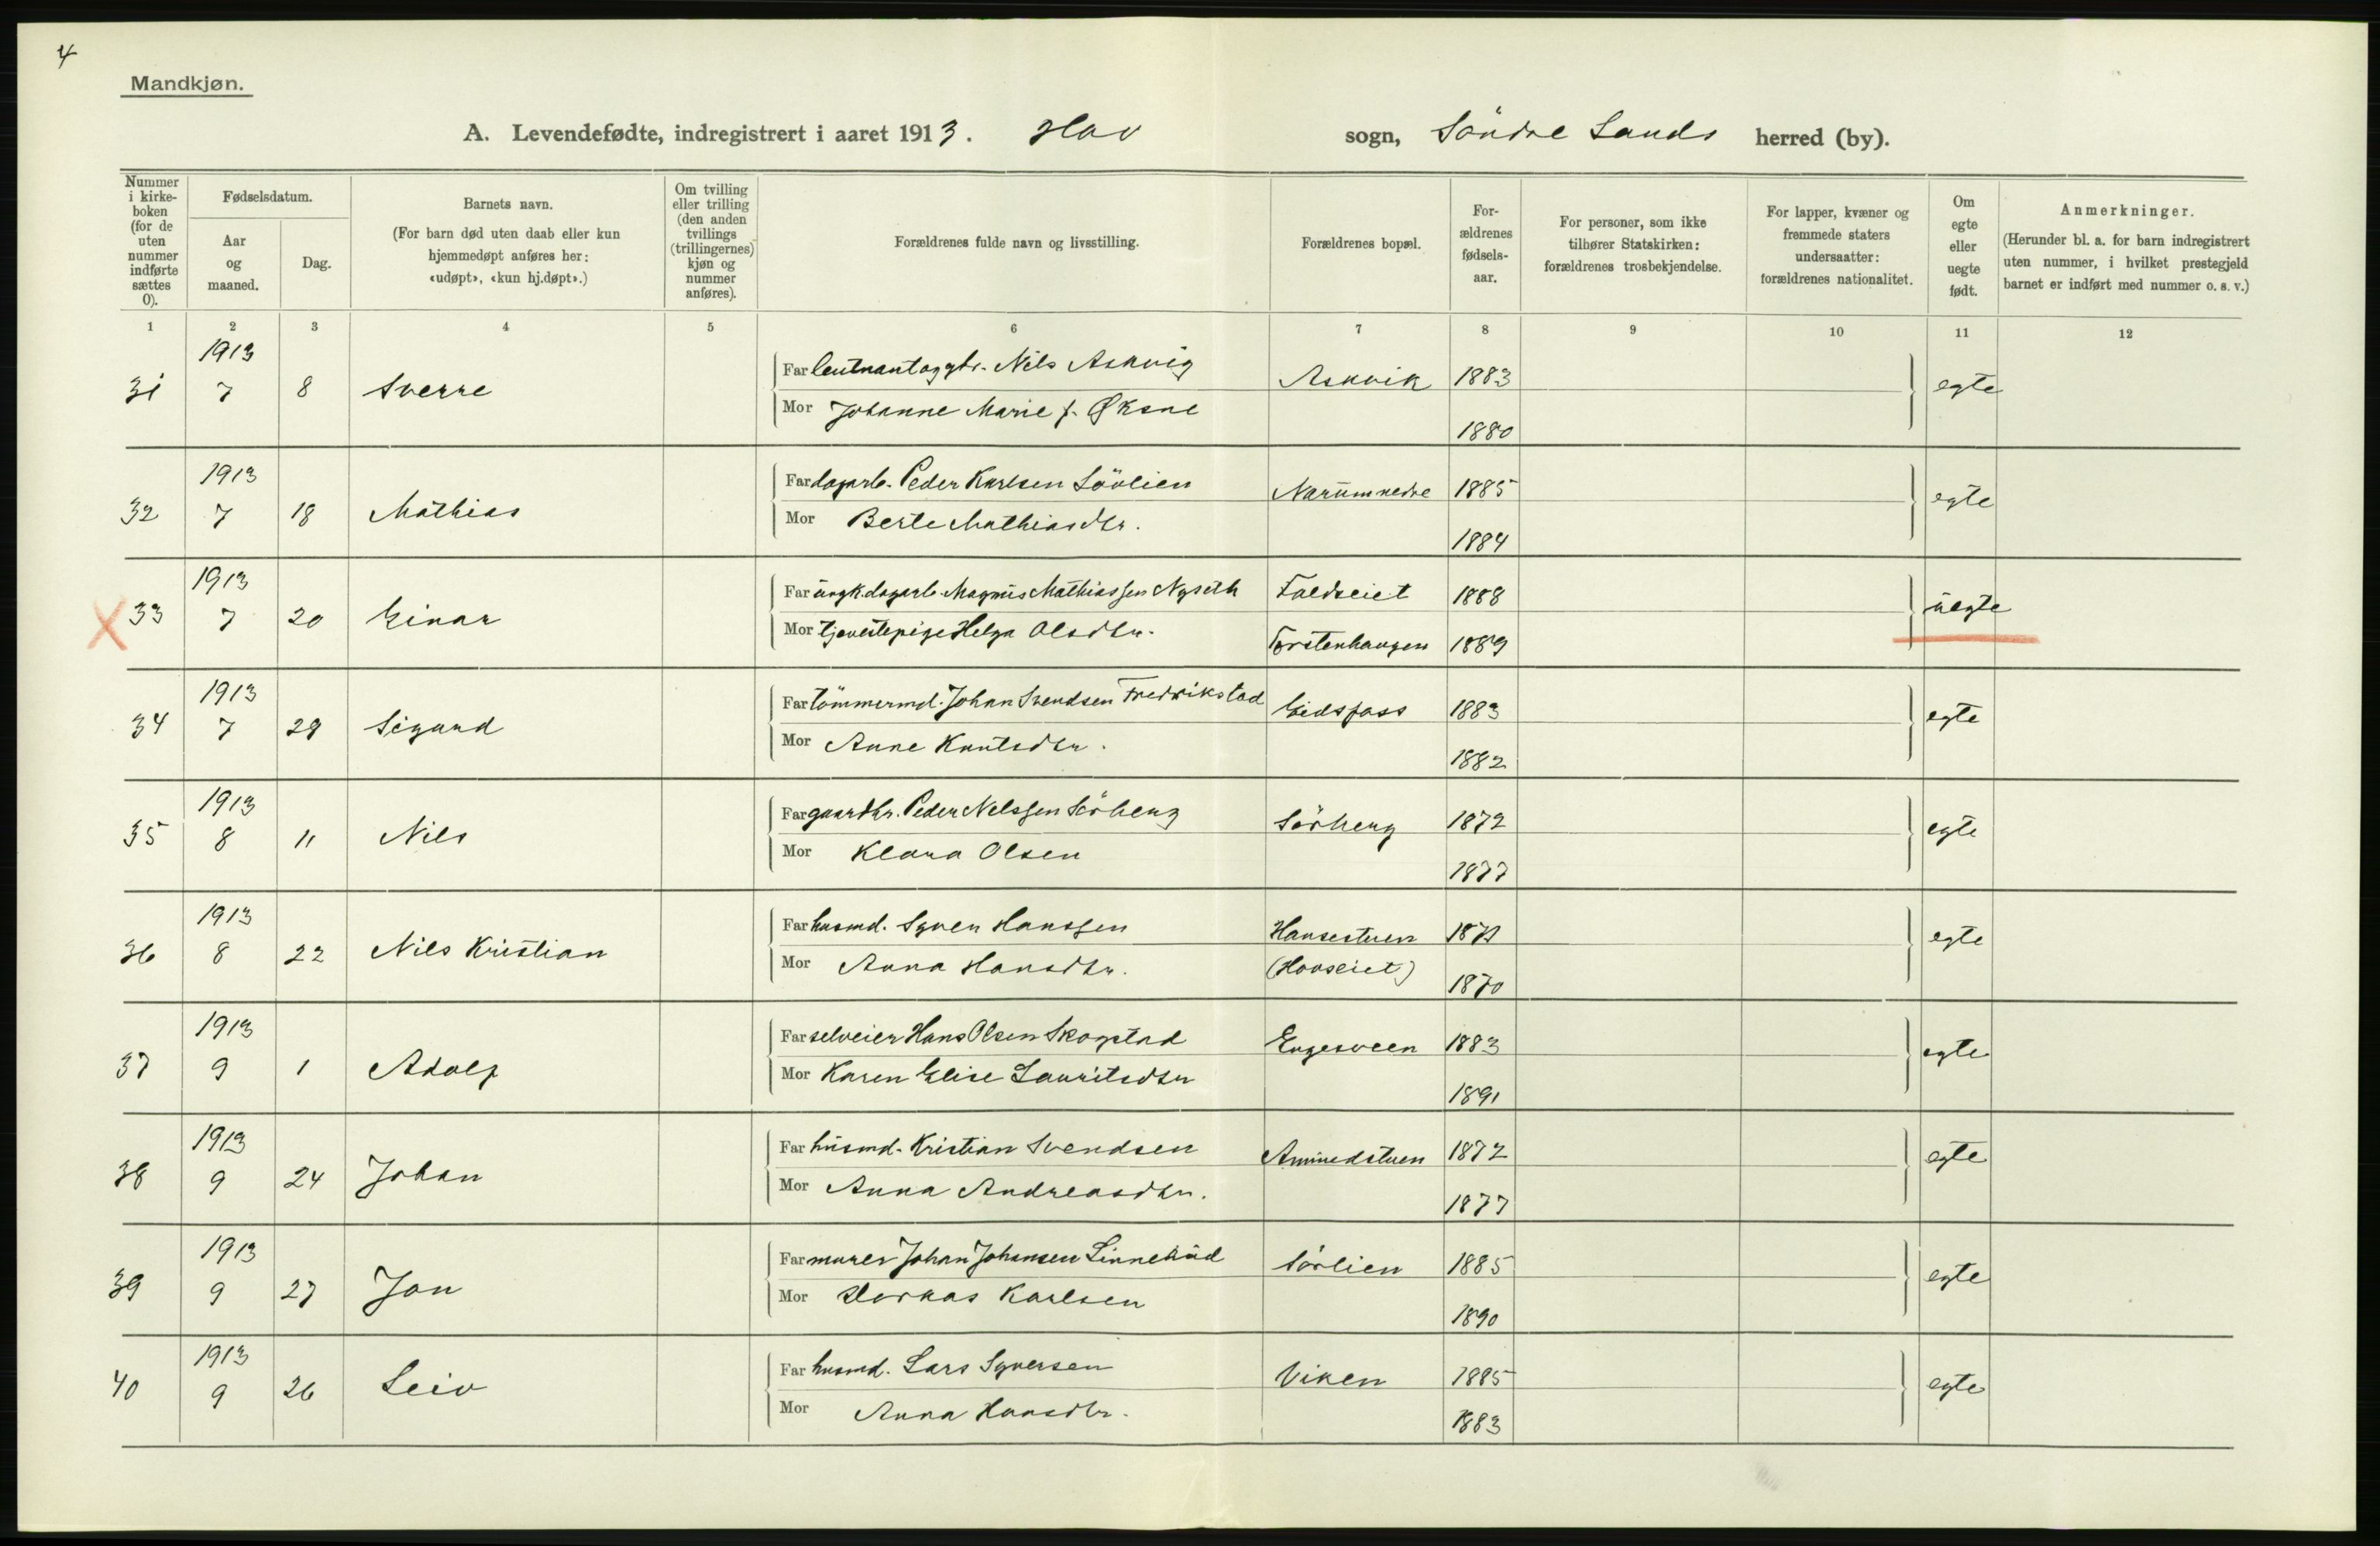 4
Mandkjøn.
A. Levendefødte, indregistrert i aaret 1913. Hov sogn, Söndre Lands herred (by).
Nummer i kirke-boken (for de uten nummer indførte sættes 0).
Fødselsdatum.
Aar og maaned.
Dag.
Barnets navn.
(For barn død uten daab eller kun hjemmedøpt anføres her: «udøpt», «kun hj.døpt».)
Om tvilling eller trilling (den anden tvillings (trillingernes) kjøn og nummer anføres).
Forældrenes fulde navn og livsstilling.
Forældrenes bopæl.
For-ældrenes fødsels-aar.
For personer, som ikke tilhører Statskirken: forældrenes trosbekjendelse.
For lapper, kvæner og fremmede staters undersaatter: forældrenes nationalitet.
Om egte eller uegte født.
Anmerkninger.
(Herunder bl. a. for barn indregistrert uten nummer, i hvilket prestegjeld barnet er indført med nummer o. s. v.)
1 2 3 4 5 6 7 8 9 10 11 12
31 1913 7 8 Sverre Far leutnant og gbr. Nils Askvig Askvik 1883 egte
Mor Johanne Marie f. Øksne 1880
32 1913 7 18 Mathias Far dagarb. Peder Karlsen Sövlien Narum nedre 1885 egte
Mor Berte Mathiasdtr. 1884
X 33 1913 7 20 Einar Far ungk. dagarb. Magnus Mathiassen Nyseth Faldseiet 1888 uegte
Mor tjenestepige Helga Olsdtr. Torstenhaugen 1889
34 1913 7 29 Sigurd Far tömmermd. Johan Svendsen Fredrikstad Eidsfoss 1883 egte
Mor Anne Knutsdtr. 1882
35 1913 8 11 Nils Far gaardbr. Peder Nelssen Sörheng Sörheng 1872 egte
Mor Klara Olsen 1877
36 1913 8 22 Nils Kristian Far husmd. Syver Hanssen Hansestuen 1871 egte
Mor Anna Hansdtr. (Hovseiet) 1870
37 1913 9 1 Adolf Far selveier Hans Olsen Skogstad Engesveen 1883 egte
Mor Karen Elise Lauritsdtr 1891
38 1913 9 24 Johan Far husmd. Kristian Svendsen 1872 egte
Mor Anna Andreasdtr. 1877
39 1913 9 27 Jon Far murer Johan Johansen Linnebäd Sörlien 1885 egte
Mor Dorkas Karlsen 1890
40 1913 9 26 Leiv Far husmd. Lars Syversen Viken 1885 egte
Mor Anna Hansdtr. 1883